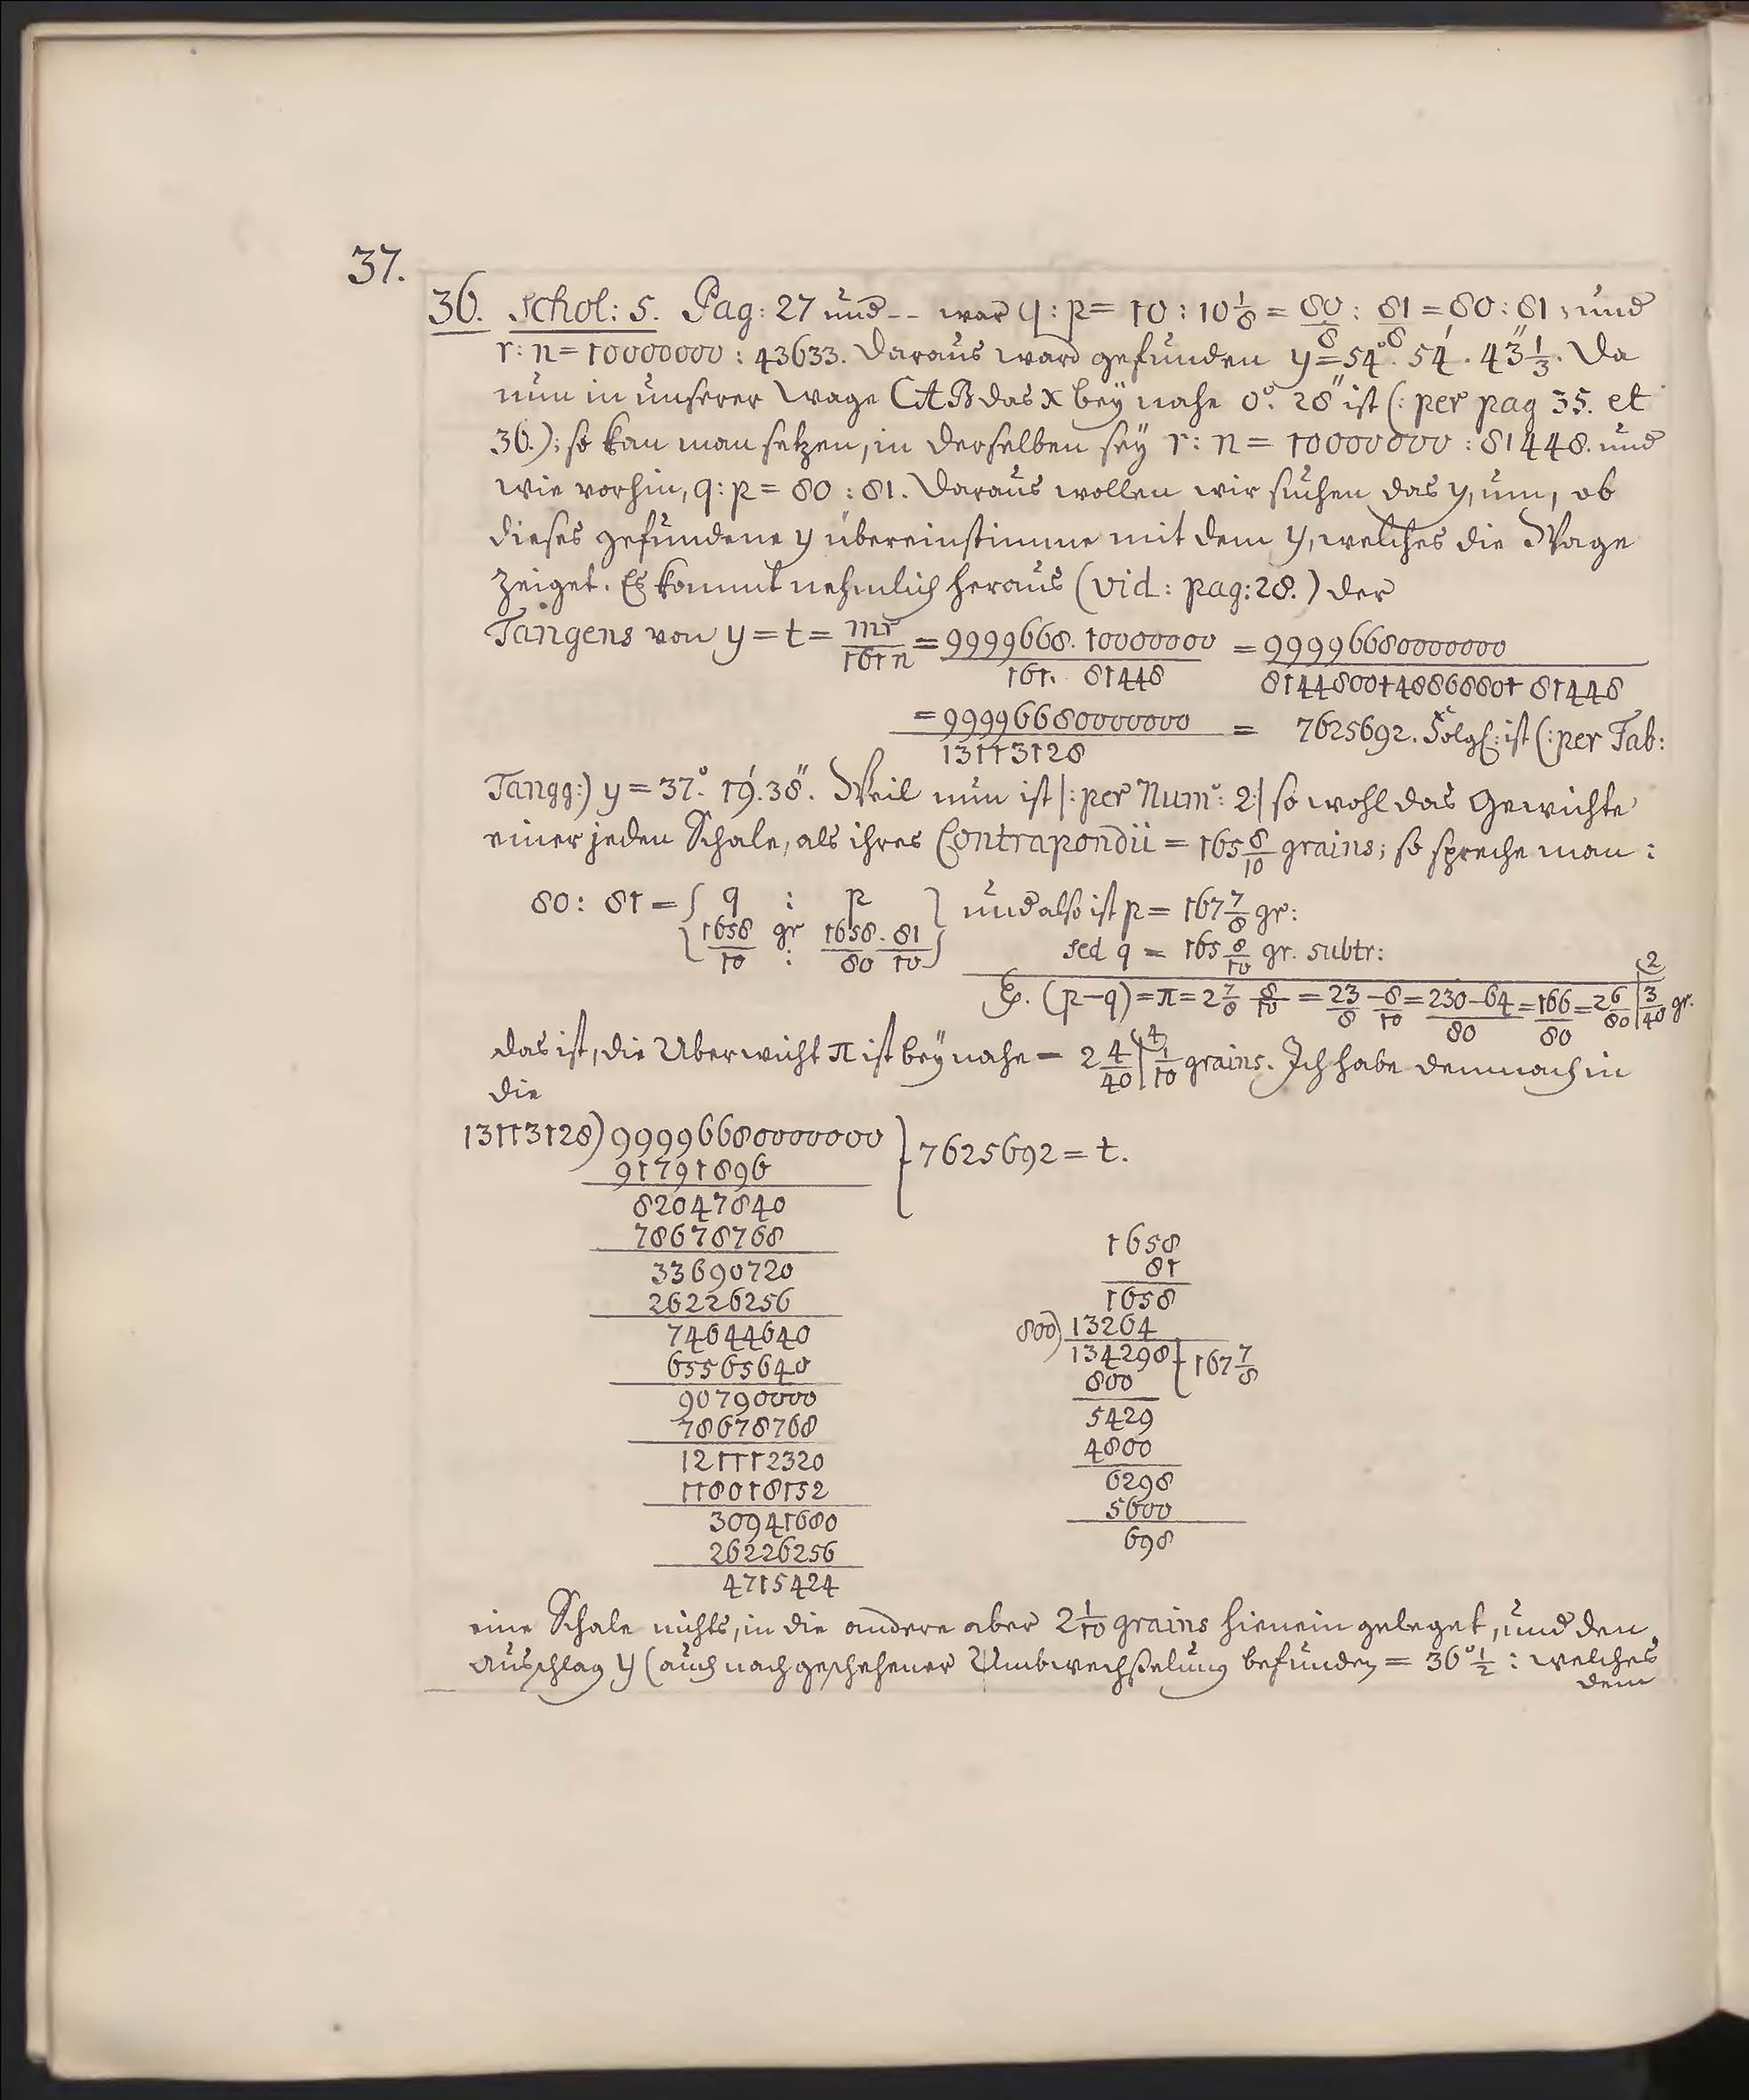 37.
36. Schol: 5. Pag: 27 und -- war q : p = 10 : 10 1/8 = 80/8 : 81/8 = 80 : 81; und
r : n = 10000000 : 43633. Daraus ward gefunden y = 54°. 54'. 43 1/3''. Da
nun in unserer Wage CAB das x bey nahe 0°. 28'' ist (: per pag 35. et
36.): so kan man setzen, in derselben sey r : n = 10000000 : 81448. und
wie vorhin, q : p = 80 : 81. Daraus wollen wir suchen das y, um, ob
dieses gefundene y übereinstimme mit dem y, welches die Wage
zeiget. Es kommt nehmlich heraus (vid: pag: 28.) der
Tangens von y = t = mr/161n = 9999668. 10000000/161. 81448 = 99996680000000/8144800+4886880+81448
= 99996680000000/13113128 = 7625692. Folgl: ist (: per Tab:
Tangg:) y = 37°. 19'. 38''. Weil nun ist |: per Num°: 2:| so wohl das Gewichte
einer jeden Schale, als ihres Contrapondii = 165 8/10 grains; so spreche man:
80 : 81 = { q : p } und also ist p = 167 7/8 gr:
{ 1658/10 gr : 1658/80 . 81/10 } sed q = 165 8/10 gr. subtr:
(p-q) = π = 2 7/8 - 8/10 = 23/8 - 8/10 = 230-64/80 = 166/80 = 2 6/80 | (2 3/40 gr.
das ist, die Uberwicht π ist bey nahe = 2 4/40 | (4 1/10 grains. Ich habe demnach in
die
13113128) 99996680000000 } 7625692 = t.
91791896
82047840
78678768
33690720
26226256
74644640
65565640
90790000
78678768
121112320
118018152
30941680
26226256
4715424
1658
81
1658
800) 13264
134298 { 167 7/8
800
5429
4800
6298
5600
698
eine Schale nichts, in die andere aber 2 1/10 grains hienein geleget, und den
Ausschlag y (auch nach geschehener Umbwechßelung befunden = 36° 1/2: welches
dem